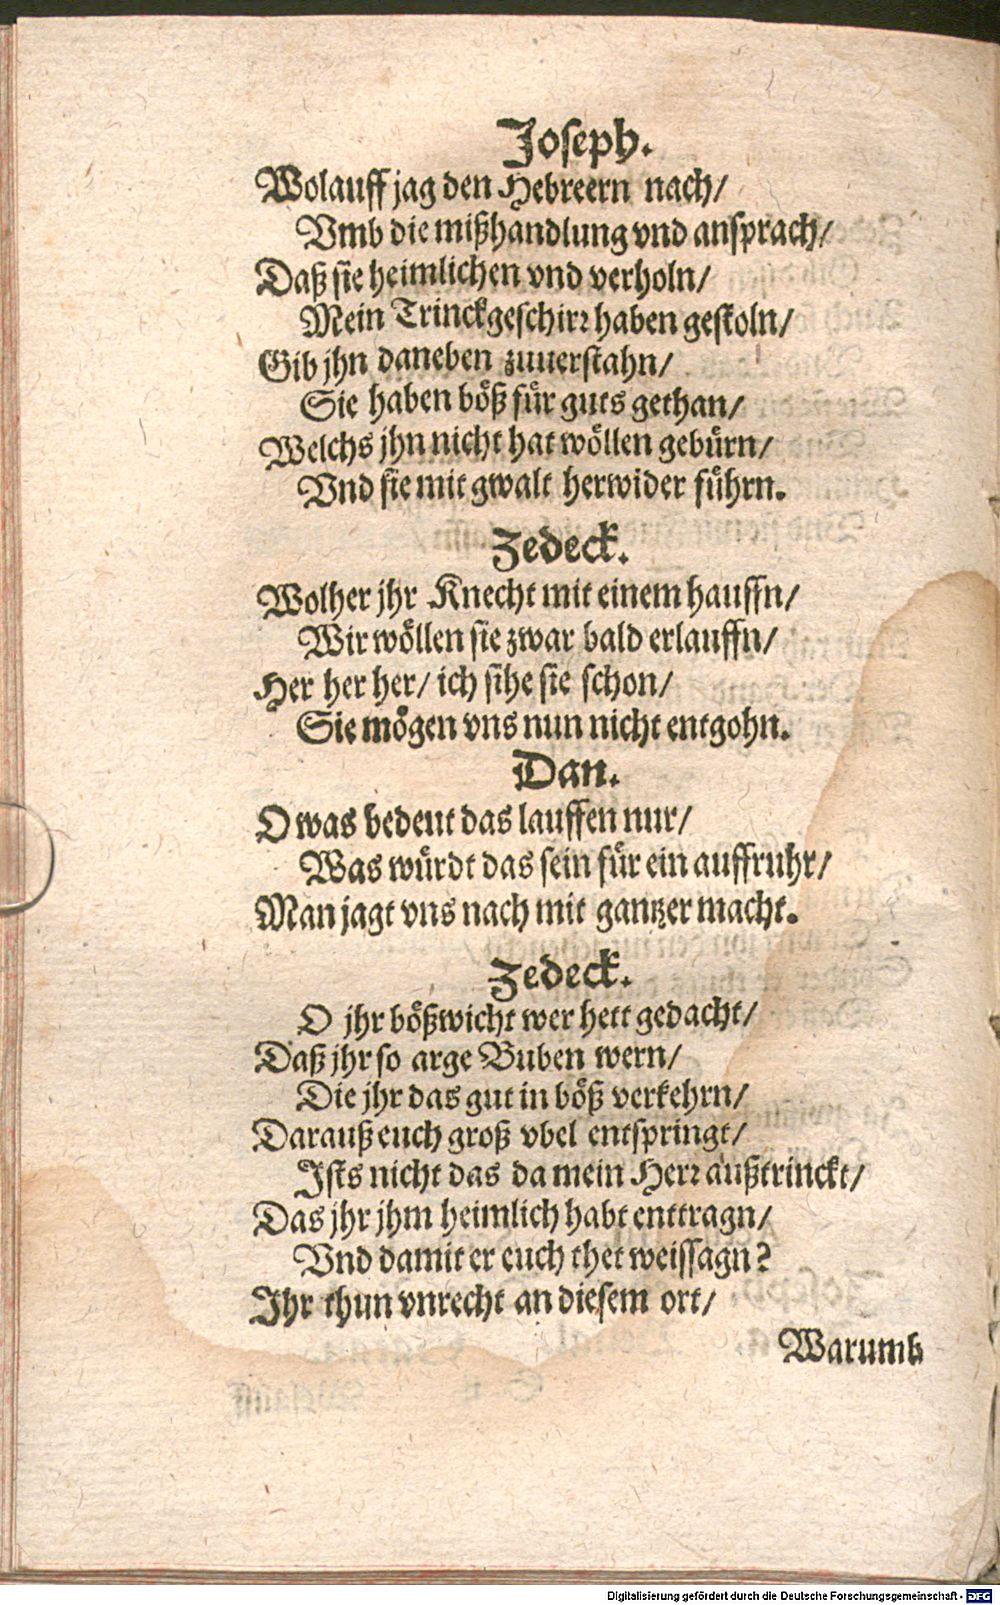 Joseph.
Wolauff jag den Hebreern nach/
Vmb die mißhandlung vnd ansprach/
Daß sie heimlichen vnd verholn/
Mein Trinckgeschirr haben gestoln/
Gib jhn daneben zuuerstahn/
Sie haben böß für guts gethan/
Welchs jhn nicht hat wöllen gebürn/
Vnd sie mit gwalt herwider führn.
Zedeck.
Wolher jhr Knecht mit einem hauffn/
Wir wöllen sie zwar bald erlauffn/
Her her her/ ich sihe sie schon/
Sie mögen vns nun nicht entgohn.
Dan.
O was bedeut das lauffen nur/
Was würdt das sein für ein auffruhr/
Man jagt vns nach mit gantzer macht.
Zedeck.
O jhr bößwicht wer hett gedacht/
Daß jhr so arge Buben wern/
Die jhr das gut in böß verkehrn/
Darauß euch groß vbel entspringt/
Ists nicht das da mein Herr außtrinckt/
Das jhr jhm heimlich habt enttragn/
Vnd damit er euch thet weissagn?
Ihr thun vnrecht an diesem ort/
Warumb
Digitalisierung gefördert durch die Deutsche Forschungsgemeinschaft - DFG